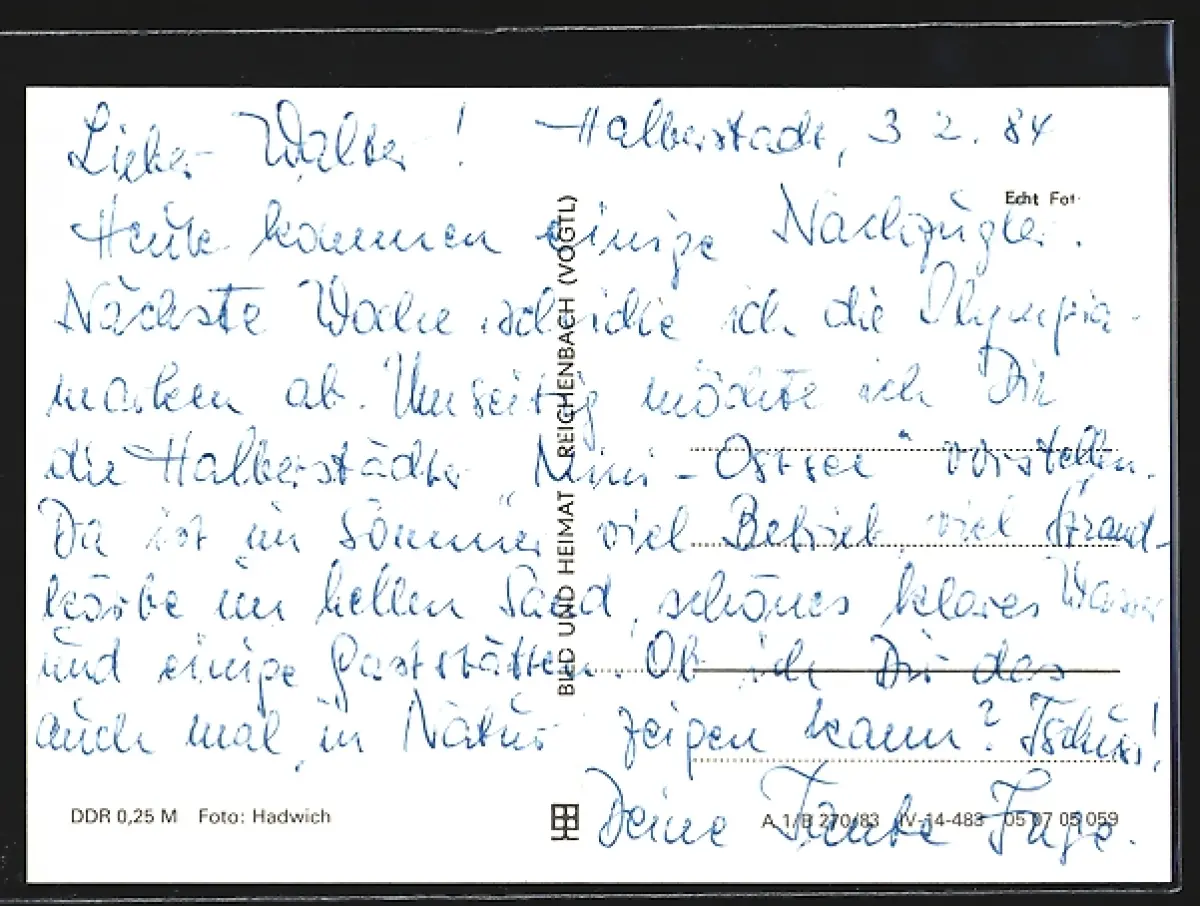 Lieber Walter! Halberstadt, 3 2. 84
Echt Foto
Heute kommen einige Nachzügler.
Nächste Woche schicke ich die Olympia-
marken ab. Umseitig möchte ich Dir
die Halberstädter "Mini-Ostsee" vorstellen.
Da ist im Sommer viel Betrieb, viel Strand-
körbe im hellen Sand, schönes klares Wasser
und einige Gaststätten. Ob ich Dir das
auch mal in Natur zeigen kann? Tschüss!
Deine Tante Inge.
BILD UND HEIMAT REICHENBACH (VOGTL)
DDR 0,25 M Foto: Hadwich
A 1/B 270/83 IV-14-483 05 07 05 059